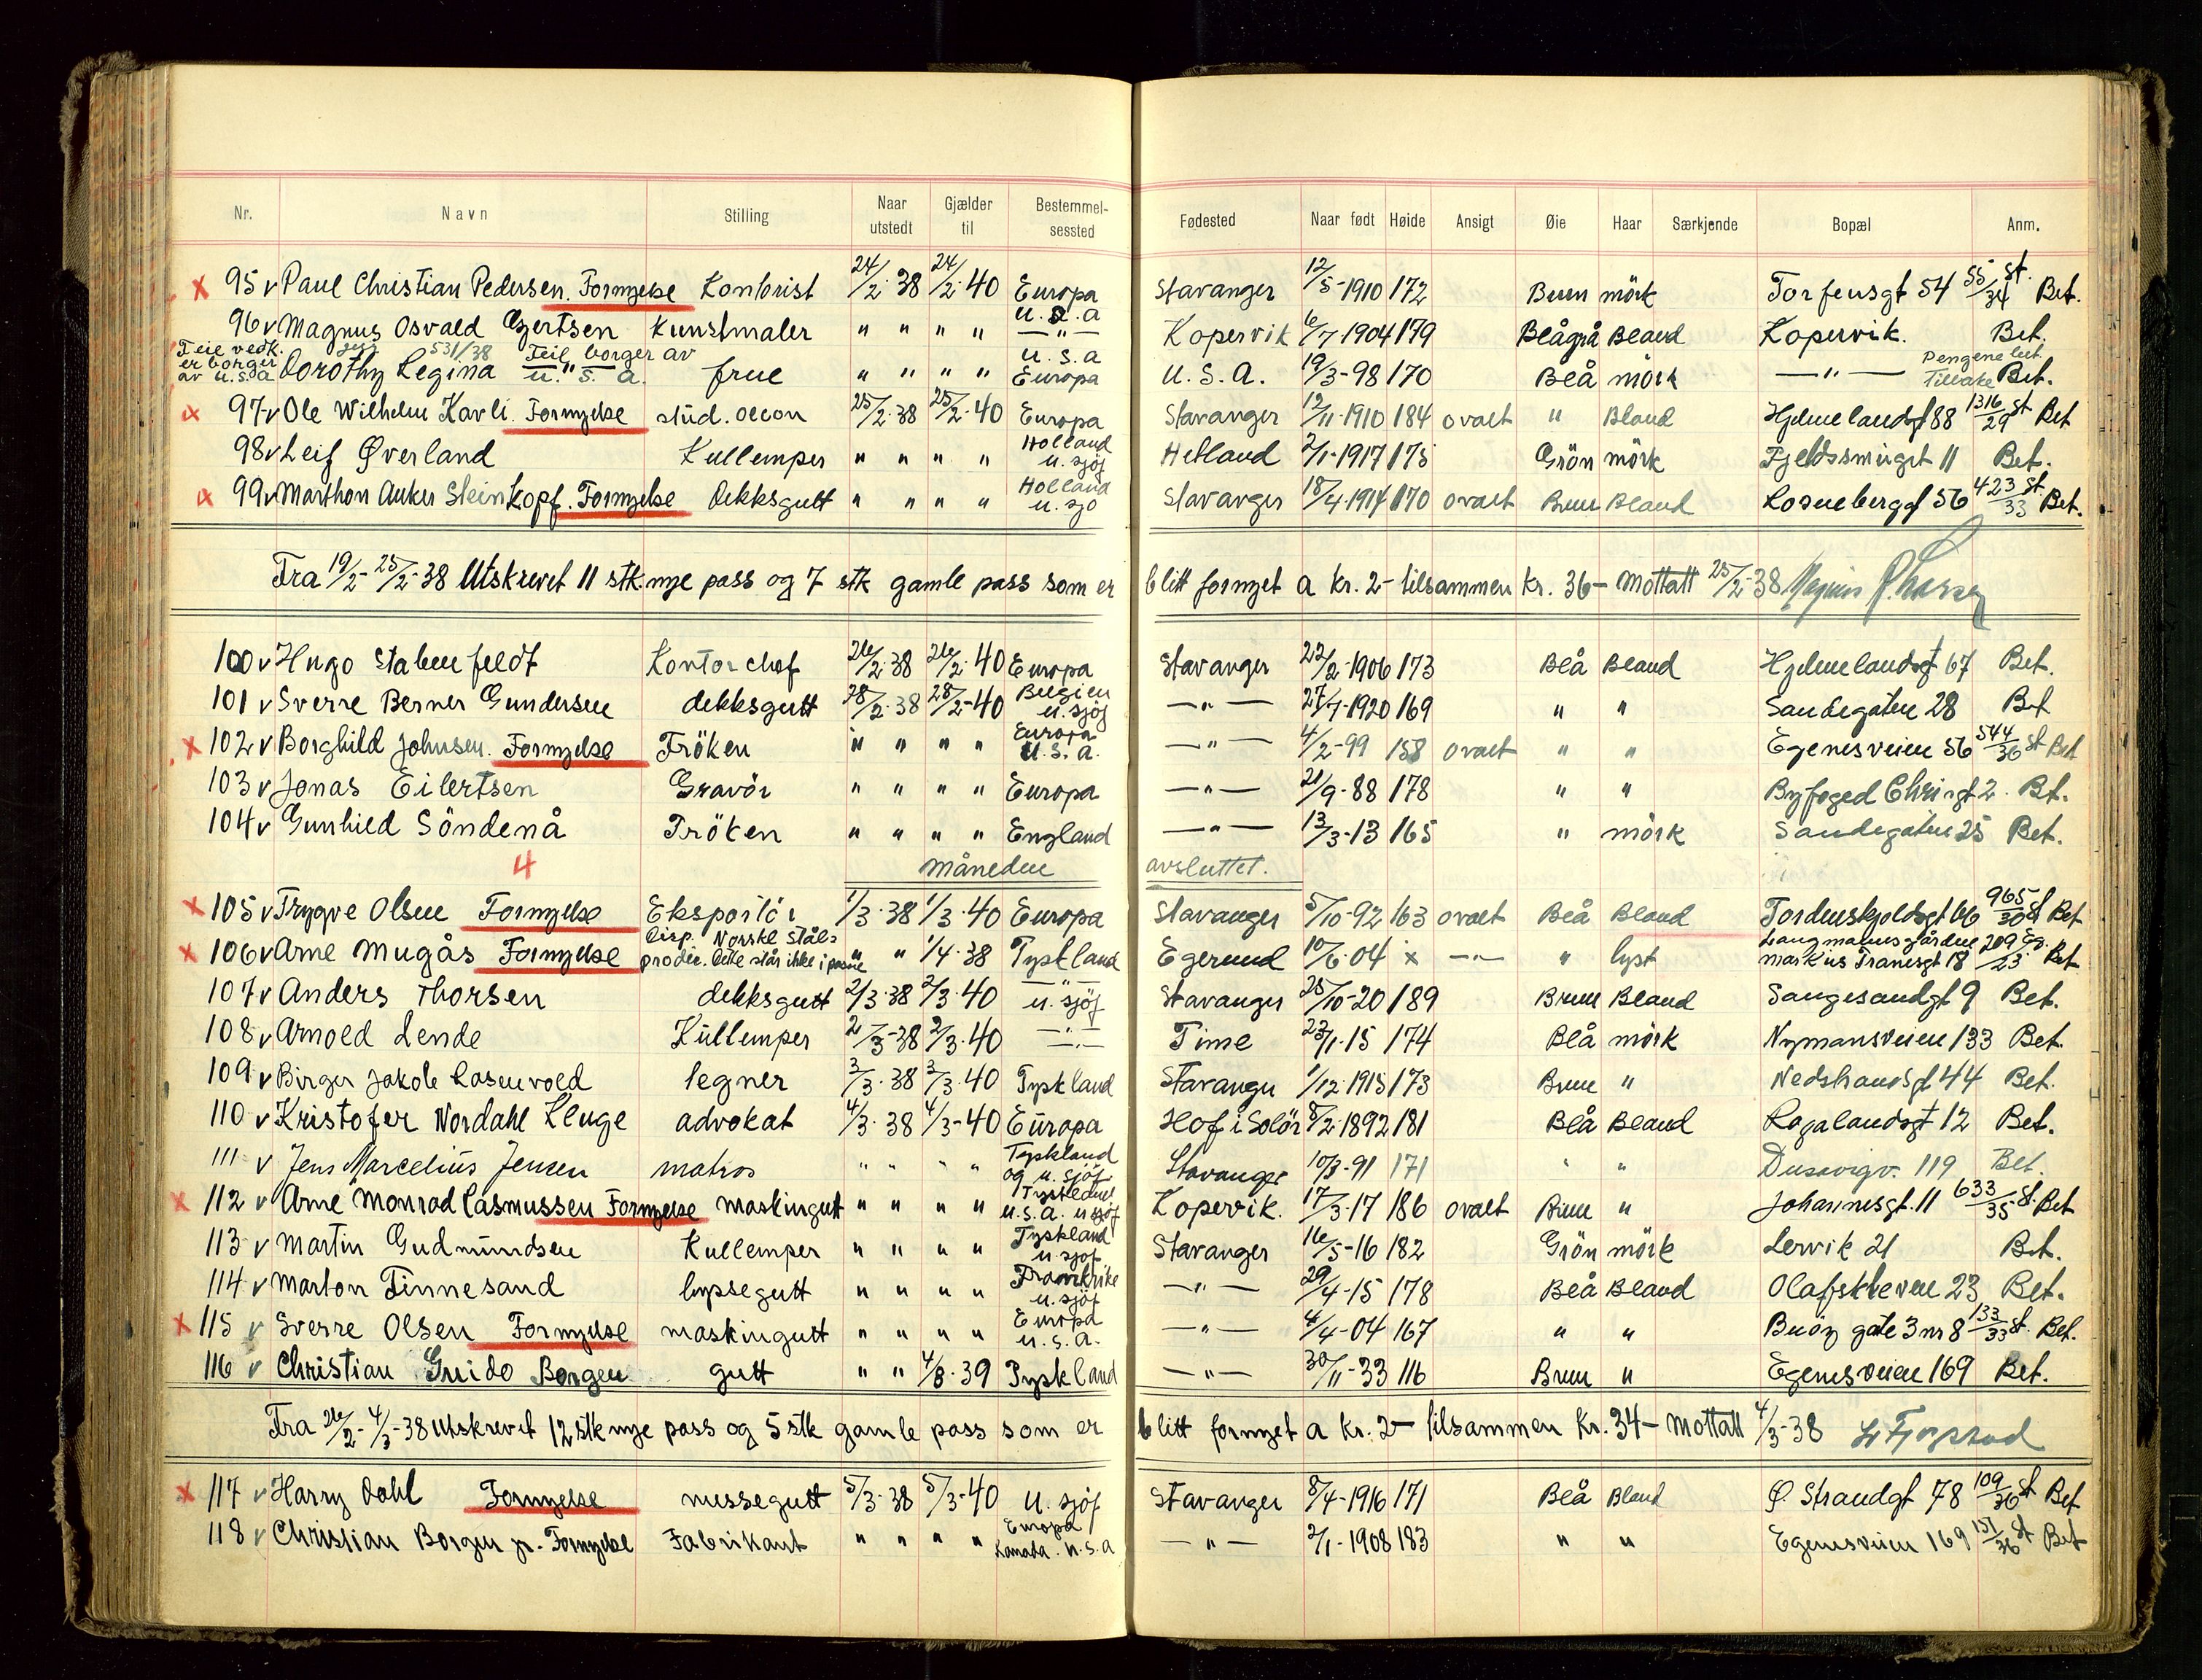 Nr. Navn Stilling Naar utstedt Gjælder til Bestemmelsessted Fødested Naar født Høide Ansigt Øie Haar Særkjende Bopæl Anm.
95 v Paul Christian Pedersen. Fornyelse Kontorist 24/2-38 24/2-40 Europa U.S.a Stavanger 12/5-1910 172 Brun mörk Torfeusgt 54 55/34 St. Bet.
96 v Magnus Osvald Gjertsen Kunstmaler " " " " —"— Kopervik 6/7-1904 179 Blågrå Bland Kopervik. Bet.
Feil vedk. er borger av U.S.a Dorothy Regina 531/38 Feil, borger av U.S.a. frue " " " " U.S.a Europa U.S.A. 19/3-98 170 Blå mörk —"— Pengene bet. Tilbake Bet.
97 v Ole Wilhelm Kavli Fornyelse stud. oecon 25/2-38 25/2-40 Europa Stavanger 12/11-1910 184 ovalt " Bland Hjelmelandsgt 88 1316/29 St Bet
98 v Leif Øverland Kullemper " " " " Holland u. sjöf Hetland 2/1-1917 175 Grön mörk Fjeldsmuget 11 Bet.
99 v Marthon Anker Steinkopf. Fornyelse dekksgutt " " " " Holland u. sjö Stavanger 18/4-1914 170 ovalt Brun Bland Rosenberggt 56 423/33 St. Bet.
Fra 19/2-25/2-38 Utskrevet 11 stk. nye pass og 7 stk gamle pass som er blitt fornyet a Kr. 2- tilsammen Kr. 36- Mottatt 25/2-38 Magnus
100 v Hugo Stabenfeldt Kontorchef 26/2-38 26/2-40 Europa Stavanger 22/2-1906 173 Blå Bland Hjelmelandsgt 67 Bet.
101 v Sverre Berner Gundersen dekksgutt 28/2-38 28/2-40 Belgien u. sjöf —"— 27/7-1920 169 " " Sandegaten 28 Bet
102 v Borghild Johnsen. Fornyelse Fröken " " " " Europa U.S.a. —"— 4/2-99 158 ovalt " " Egenesveien 56 544/36 St Bet
103 v Jonas Eilertsen Gravör " " " " Europa —"— 21/9-88 178 " " Byfoged Chrisgt 2. Bet.
104 v Gunhild Söndenå Fröken " " " " England —"— 13/3-13 165 " mörk Sandegaten 25 Bet.
4 Måneden avsluttet.
105 v Trygve Olsen Fornyelse Eksportör 1/3-38 1/3-40 Europa Stavanger 5/10-92 163 ovalt Blå Bland Tordenskjoldsgt 66 965/30 St Bet
106 v Arne Mugås Fornyelse Disp. Norske Stål- produc. Dette står ikke i passe " " 1/4-38 Tyskland Egersund 10/6-04 x —"— " lyst Langmannsgården Markus Tranesgt 18 209/23 Eg. Bet
107 v Anders Thorsen dekksgutt 2/3-38 2/3-40 —"— u. sjöf Stavanger 25/10-20 189 Brun Bland Saugesandgt 9 Bet.
108 v Arnold Lende Kullemper 2/3-38 2/3-40 —"— Time 23/1-15 174 Blå mörk Nymansveien 133 Bet.
109 v Birger Jakob Rosenvold tegner 3/3-38 3/3-40 Tyskland Stavanger 1/12-1915 173 Brun " Nedstrandsgt 44 Bet.
110 v Kristofer Nordahl Kluge advokat 4/3-38 4/3-40 Europa Hof i Solör 8/2-1892 181 Blå Bland Rogalandsgt 12 Bet.
111 v Jens Marcelius Jensen matros " " " " Tyskland og u. sjöf Stavanger 10/3-91 171 " " Dusavigv. 119 Bet.
112 v Arne Monrad Rasmussen Fornyelse maskingutt " " " " Tyskland U.S.a. u sjöf Kopervik. 17/3-17 186 ovalt Brun " Johannesgt. 11 633/35 St. Bet
113 v Martin Gudmundsen Kullemper " " " " Tyskland u. sjöf Stavanger 16/5-16 182 Grön mörk Lervik 21 Bet.
114 v Marton Tinnesand byssegutt " " " " Frankrike u. sjöf —"— 29/4-15 178 Blå Bland Olafskleven 23 Bet.
115 v Sverre Olsen Fornyelse maskingutt " " " " Europa U.S.a. —"— 4/4-04 167 " " Buöy gate 3 nr 8 133/33 St. Bet.
116 v Christian Guido Borgen gutt " " 4/3-39 Tyskland —"— 30/11-33 116 Brun " Egenesveien 169 Bet.
Fra 26/2-4/3-38 utskrevet 12 stk nye pass og 5 stk gamle pass som er blitt fornyet a Kr. 2- tilsammen Kr. 34- Mottatt 4/3-38
117 v Harry Dahl Fornyelse messegutt 5/3-38 5/3-40 U. sjöf Stavanger 8/4-1916 171 Blå Bland Ø. Strandgt 78 109/36 St Bet
118 v Christian Borgen jr. Fornyelse Fabrikant " " " " Europa Kanada. U.S.a —"— 2/1-1908 183 " " Egenesveien 169 157/36 St Bet